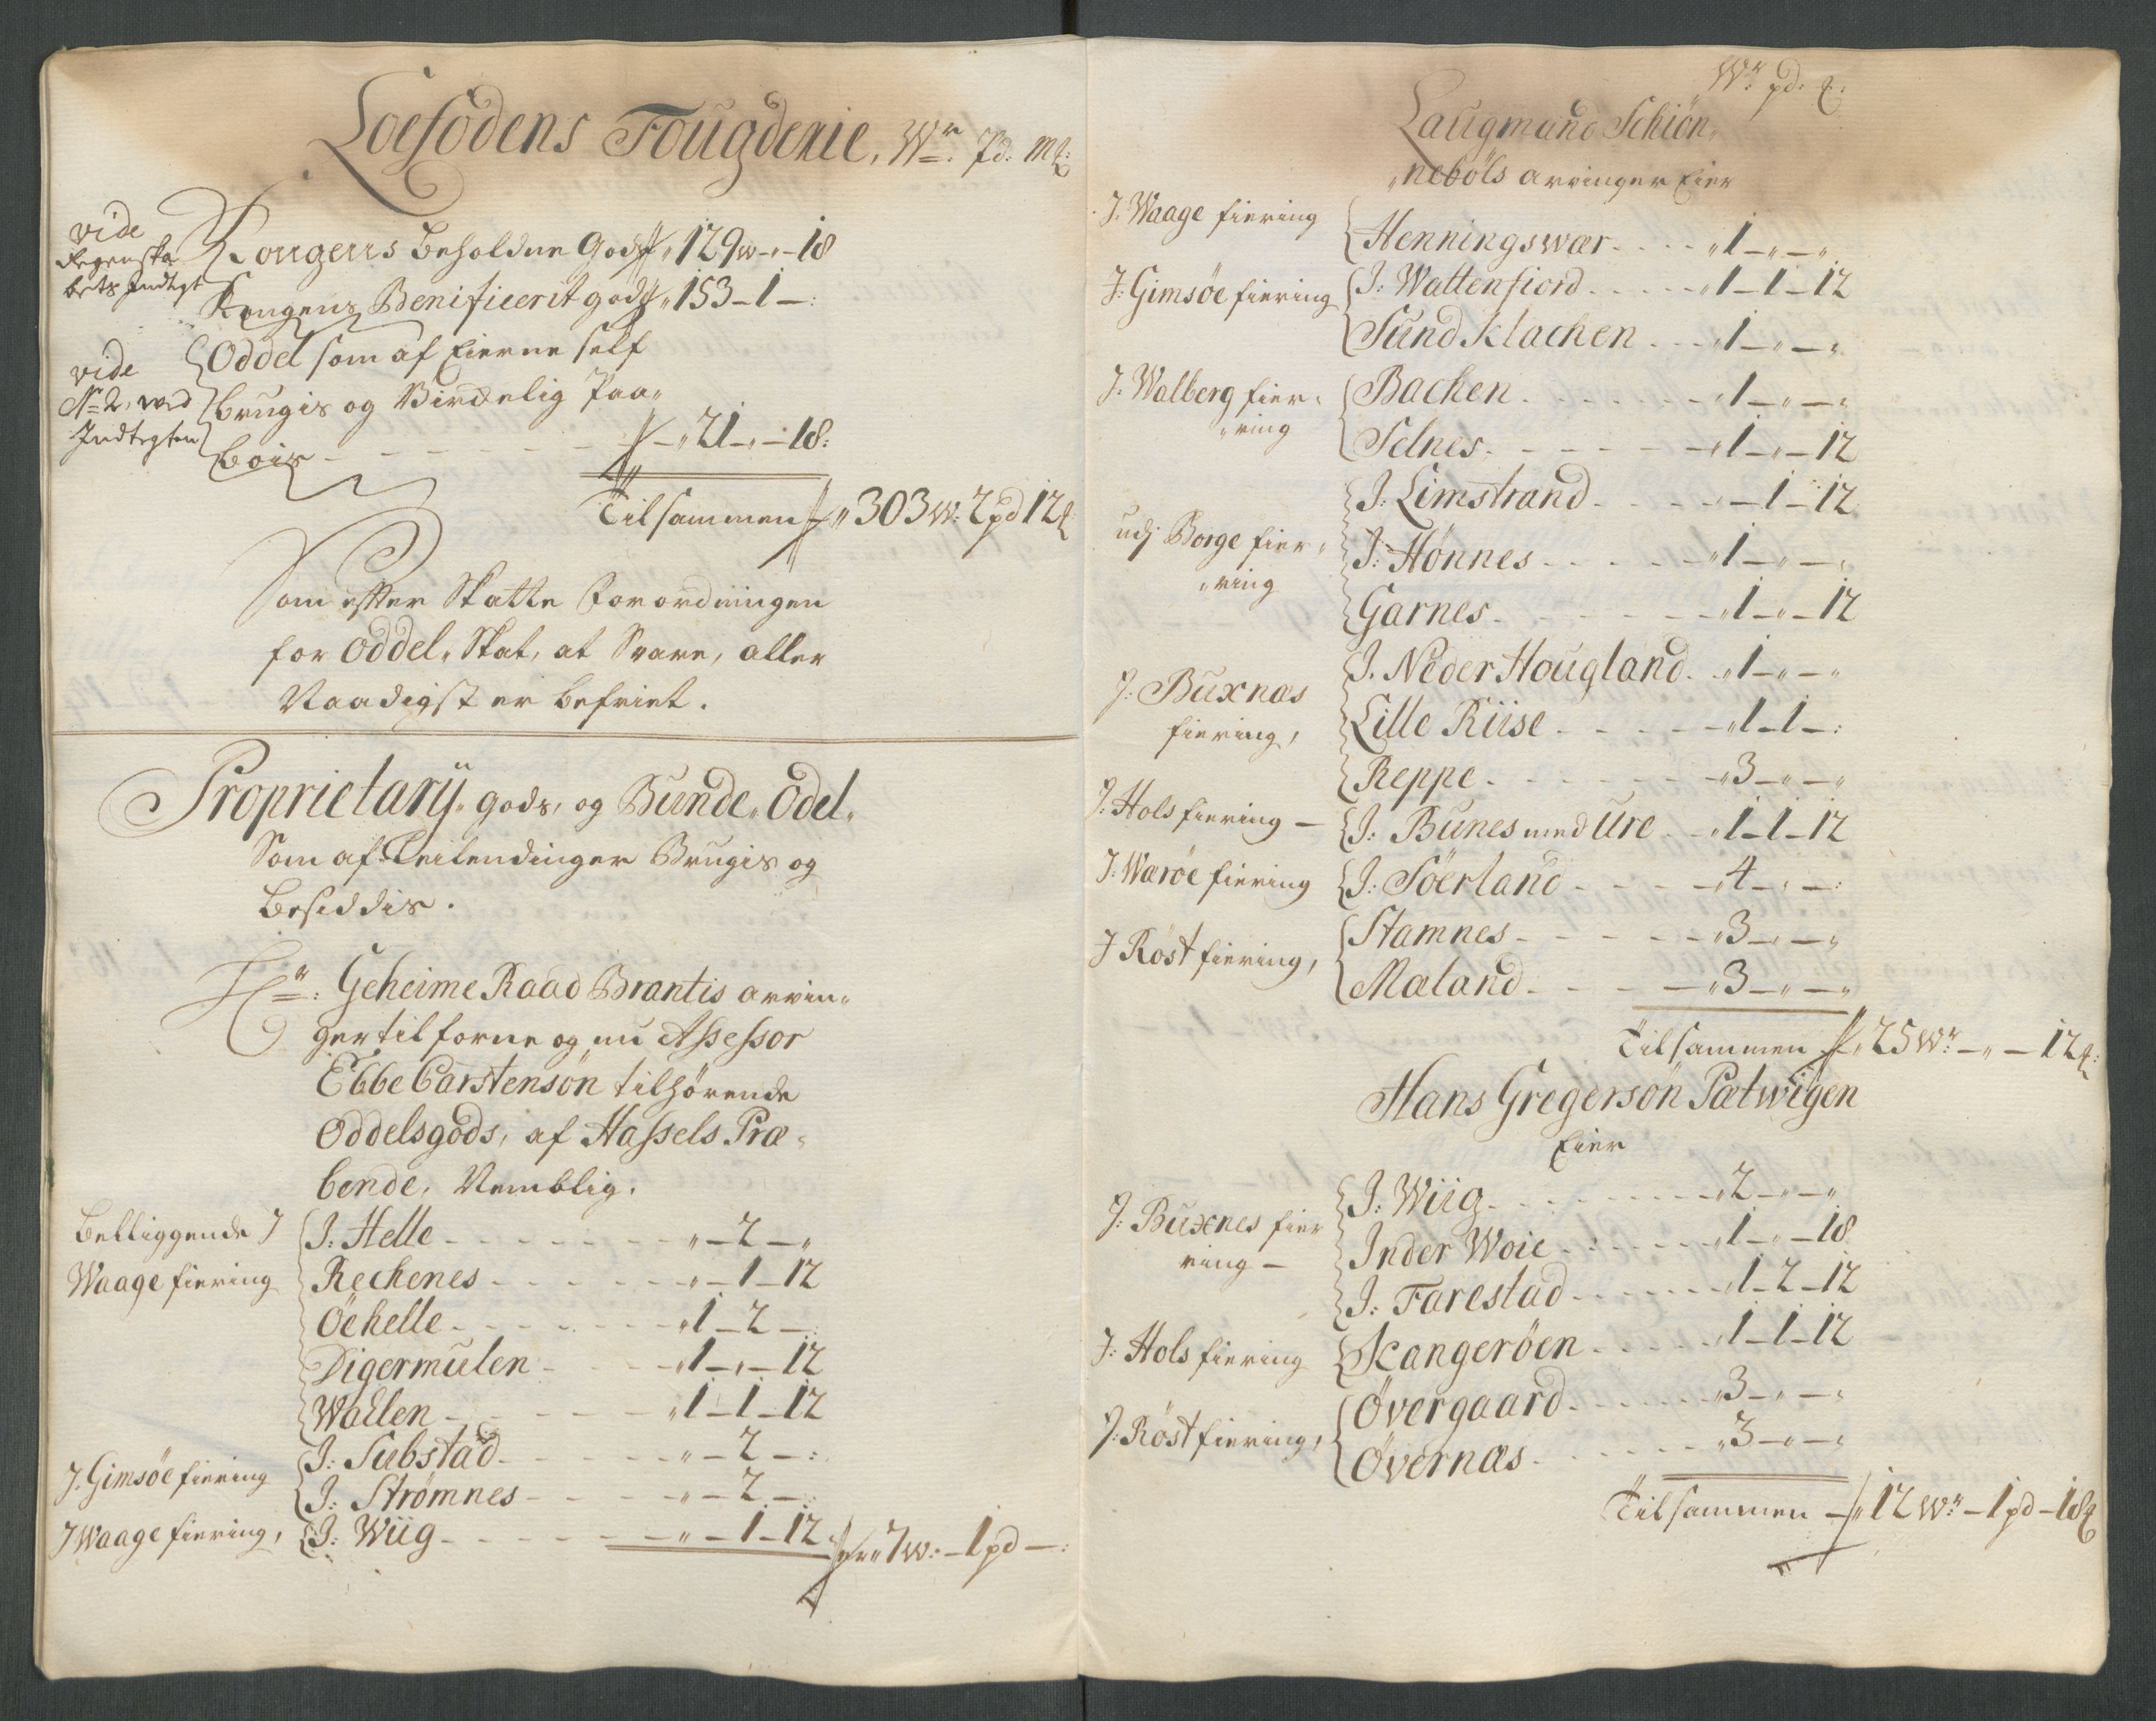 Loefodens Fougderie, Wr. Pd. mk:
vide Regenska
bets Indtegt
Kongens beholdne Gods 129 w - „ - 18
Kongens Benificerit gods „ 153 - 1 - :
vide
No 2, wed
Indtegten
Oddel som af Eierne self
brugis og Paa„
bois - - - „ 21 - „ - 18:
Tilsammen „ 303 w: 2 pd 12
Som efter Skatte Forordningen
for Oddel„Skat, at Svare, aller
Naadigst er befriet.
Proprietarij„gods, og Bunde„Odel„
Som af Leilendinger Brugis og
Besiddis.
Hr: Geheime Raad Brantis arvin„
ger tilforne og nu Assessor
Ebbe Carstensön tilhörende
Oddelsgods, af Hassels Præ„
bende, Nemblig.
Belliggende J
Waage fiering
J: Helle - - - „ - 2 - „
Rechenes - - - „ - 1 - 12
Öehelle - - - „ 1 - 2 - :
Digermulen - - - „ 1 - „ - 12
Wallen - - - „ 1 - 1 - 12
J. Gimsöe fiering
J: Substad - - - „ - 2 - :
J: Strömnes - - - „ - 2 - :
J Waage fiering,
J: Wiig - - - „ - 1 - 12 „ 7 w: - 1 pd - :
Wr pd.
Laugmand Schiön„
„neböls arvinger Eier
J. Waage fiering
Henningswær - - - „ 1 - „ - „
J: Gimsöe fiering
J: Wattenfiord - - - „ 1 - 1 - 12
Sund Klachen - - - „ 1 - „ - „
J: Walberg fier„
„ring
Bachen - - - „ 1 - „ - „
Selnes - - - „ 1 - „ - 12
udj Borge fier„
„ring
J: Limstrand - - - „ - 1 - 12
J: Hönnes - - - „ 1 - „ - :
Garnes - - - „ 1 - „ - 12
J: Buxnæs
fiering,
J. Neder Hougland - „ 1 - „ - „
Lille Riise - - - „ 1 - 1 - :
Reppe - - - „ 3 - „ - „
J: Hols fiering -
J: Bunes med Ure - „ 1 - 1 - 12
J: Waröe fiering
J: Söerland - - - „ 4 - „ - :
J Röst fiering,
Stamnes - - - „ 3 - „ - „
Mæland - - - „ 3 - „ - „
Tilsammen „ 25 Wr: - „ - 12
Hans Gregersön Pætwigen
Eier
J: Buxnes fier
ring -
J: Wiig - - - „ 2 - „ - „
Inder Woie - - - „ 1 - „ - 18
J: Farestad - - - „ 1 - 2 - 12
J: Hols fiering
Skangeröen - - - „ 1 - 1 - 12
J: Röst fiering,
Övergaard - - - „ 3 - „ - :
Övernæs - - - „ 3 - „ - :
Tilsammen - „ 12 Wr - 1 pd - 18